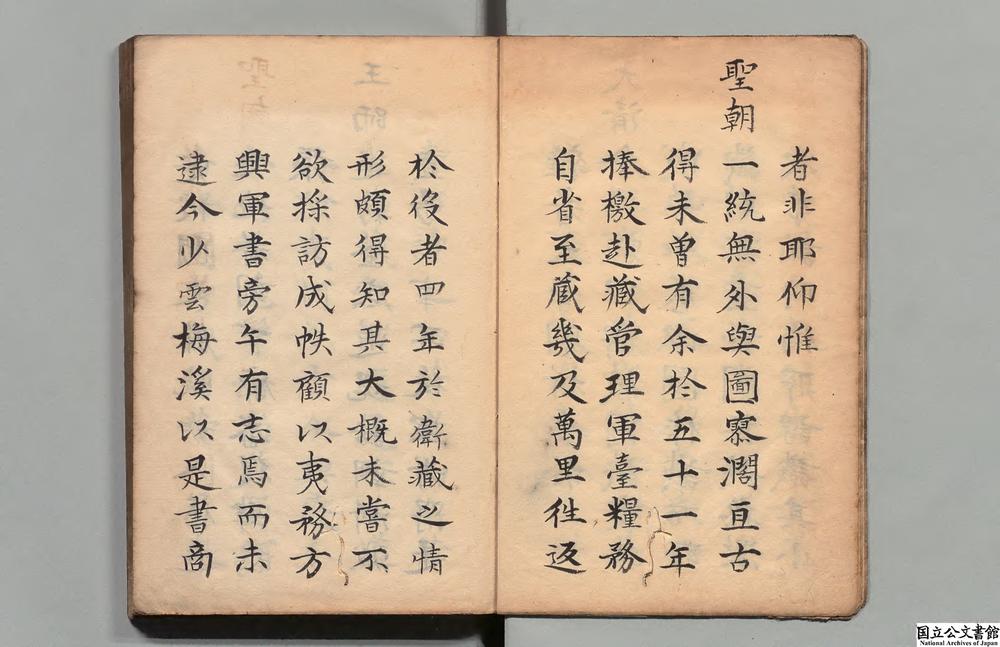 者非耶仰惟
聖朝一統無外輿圖寥濶亘古
得未曾有余扵五十一年
捧檄赴藏管理軍臺糧務
自省至藏幾及萬里徃返
扵役者四年於衛藏之情
形頗得知其大概未嘗不
欲採訪成帙顧以夷務方
興軍書旁午有志焉而未
逮今少雲梅溪以是書商
国立公文書館
National Archives of Japan